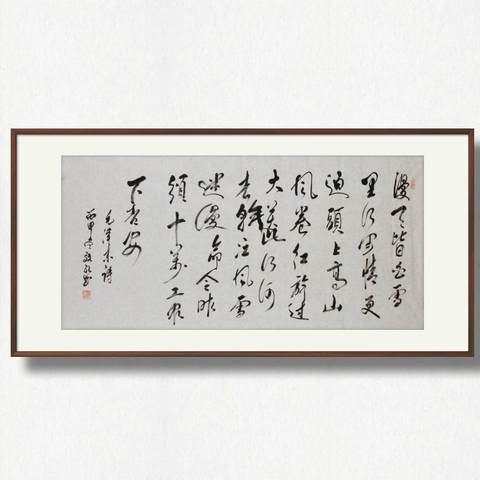 漫天皆白雪
里行军情更
迫頭上高山
風卷红旗过
大关此行何
去贛江風雪
迷漫命令昨
頒十萬工农
下吉安
毛泽东诗
丙申